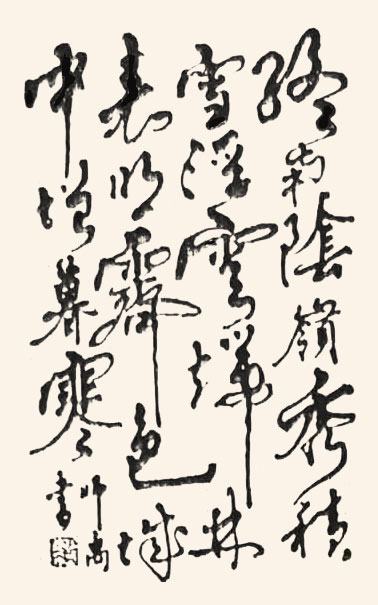 終南陰嶺秀積
雪浮雲端林
表明霽色城
中增暮寒
書